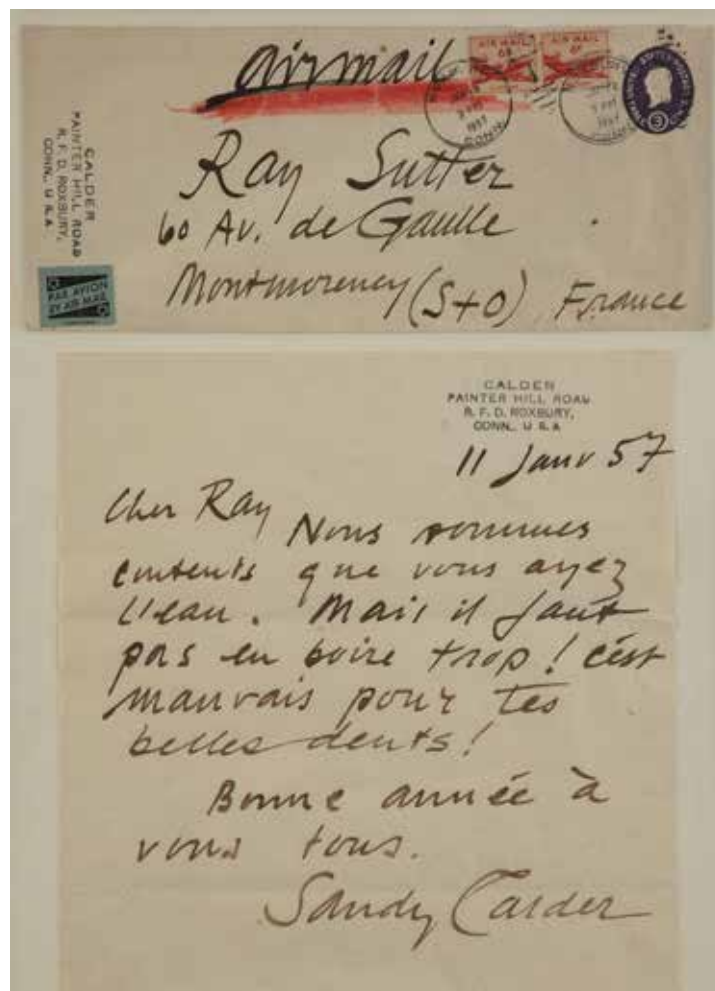 airmail
AIR MAIL
6¢
AIR MAIL
6¢
CONN.
1957
3
CALDER
PAINTER HILL ROAD
R. F. D. ROXBURY,
CONN., U S A
PAR AVION
BY AIR MAIL
Ray Sutter
60 Av. de Gaulle
Montmorency (S+O) France
CALDER
PAINTER HILL ROAD
R. F. D. ROXBURY,
CONN., U S A
11 Janv 57
Cher Ray
Nous sommes
contents que vous ayez
l'eau. Mais il faut
pas en boire trop! c'est
mauvais pour tes
belles dents!
Bonne année à
vous tous.
Sandy Calder